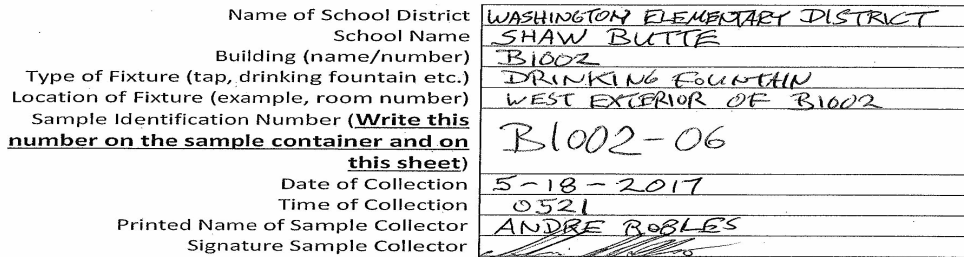 Name of School District WASHINGTON ELEMENTARY DISTRICT
School Name SHAW BUTTE
Building (name/number) B1002
Type of Fixture (tap, drinking fountain etc.) DRINKING FOUNTAIN
Location of Fixture (example, room number) WEST EXTERIOR OF B1002
Sample Identification Number (Write this
number on the sample container and on B1002-06
this sheet)
Date of Collection 5-18-2017
Time of Collection 0521
Printed Name of Sample Collector ANDRE ROBLES
Signature Sample Collector